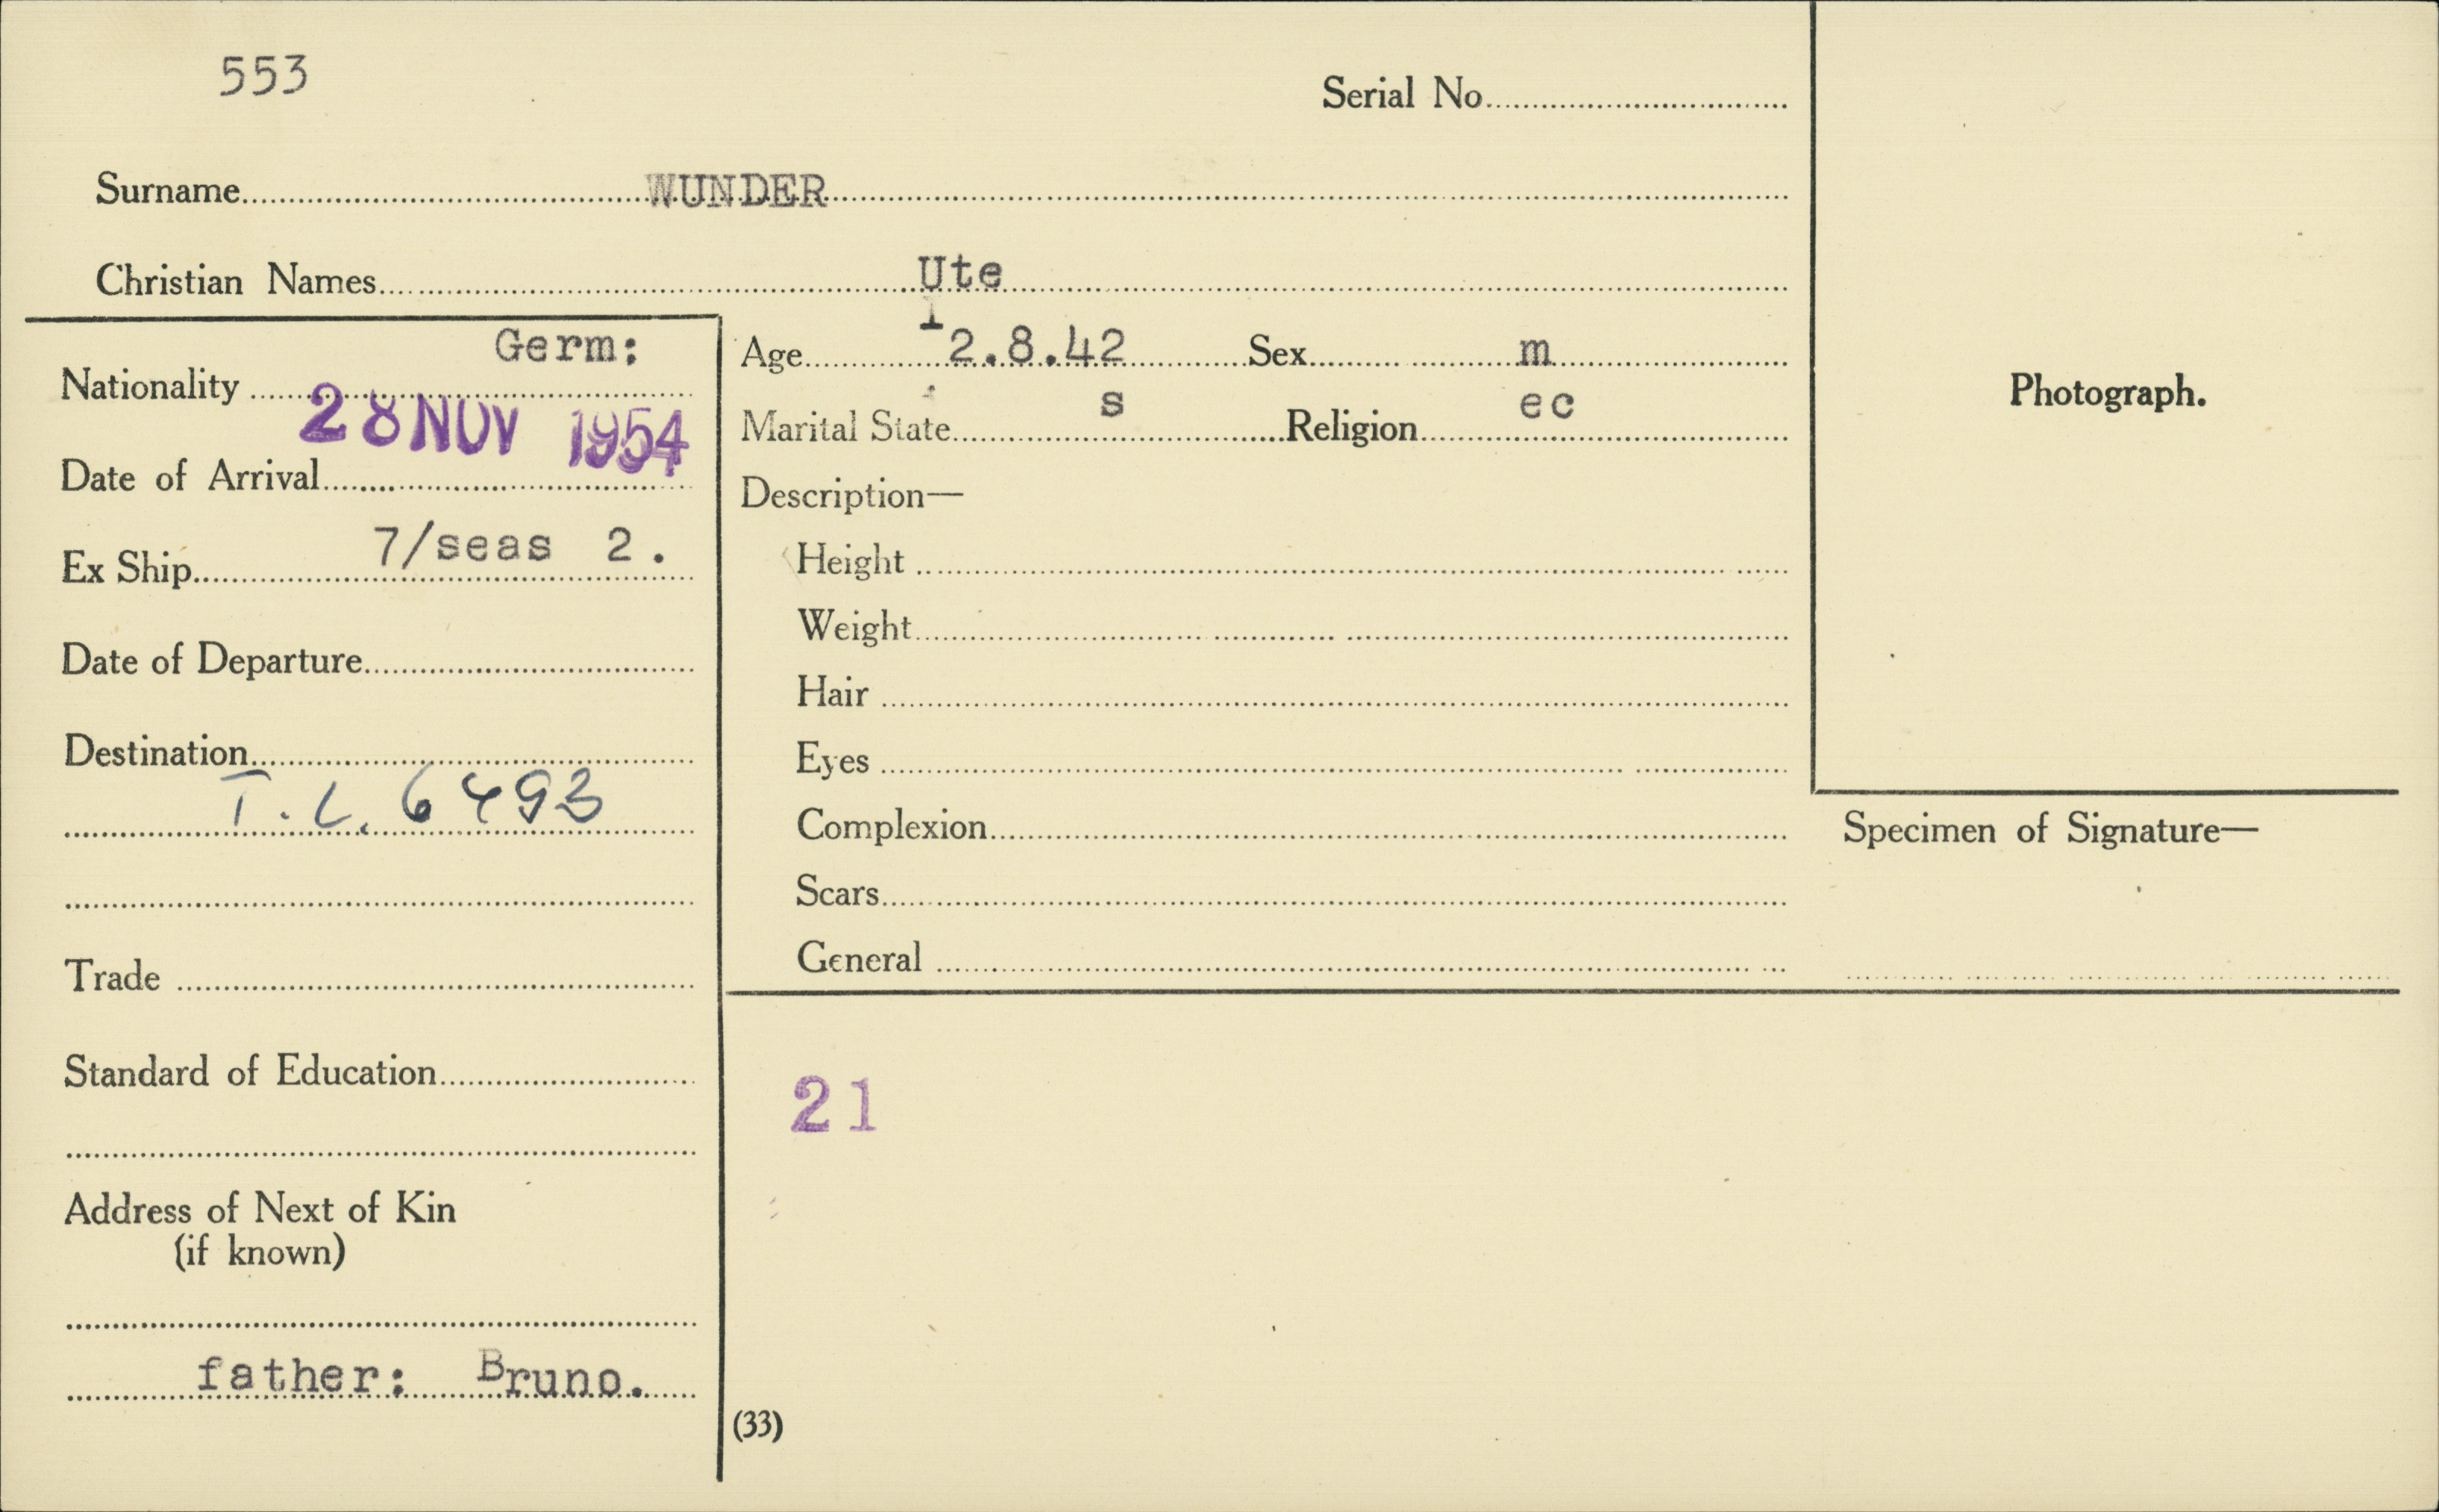 553
Serial No.
Surname WUNDER
Christian Names Ute
Nationality Germ:
Date of Arrival 28 NOV 1954
Ex Ship 7/seas 2.
Date of Departure
Destination
T.L. 6493
Trade
Standard of Education
Address of Next of Kin
(if known)
father: Bruno.
Age 12.8.42 Sex m
Marital State s Religion ec
Description—
Height
Weight
Hair
Eyes
Complexion
Scars
General
21
(33)
Photograph.
Specimen of Signature—